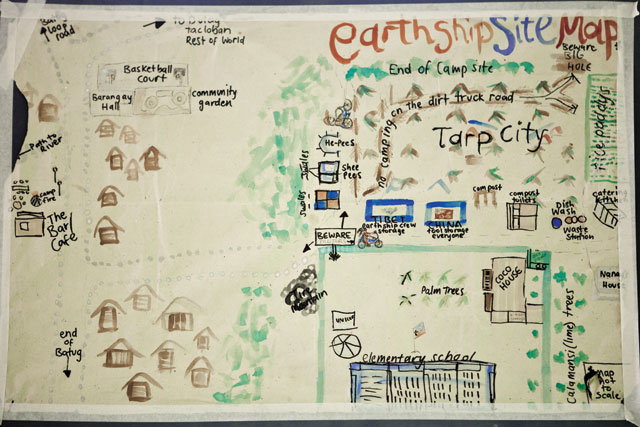 earthship Site Map
loop
road
to Batug
Tacloban
Rest of World
Beware
BIG
HOLE
End of Camp site
Basketball
Court
Barangay
Hall
community
garden
no camping on the dirt truck road
Tarp City
rice paddys
Path to
River
He-Pees
Shee
Pees
swales
swales
camp
fire
The
Barl
Cafe
compost
compost
toilets
Dish
Wash
Waste
Station
TIBET
earthship crew
storage
CHINA
tool storage
everyone
BEWARE
COCO
HOUSE
Palm Trees
Nana
House
Calamansi (lime) trees
end
of
Batug
elementary school
Map
Not to
Scale